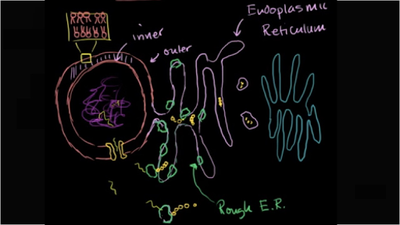 inner
outer
Endoplasmic
Reticulum
Rough E.R.